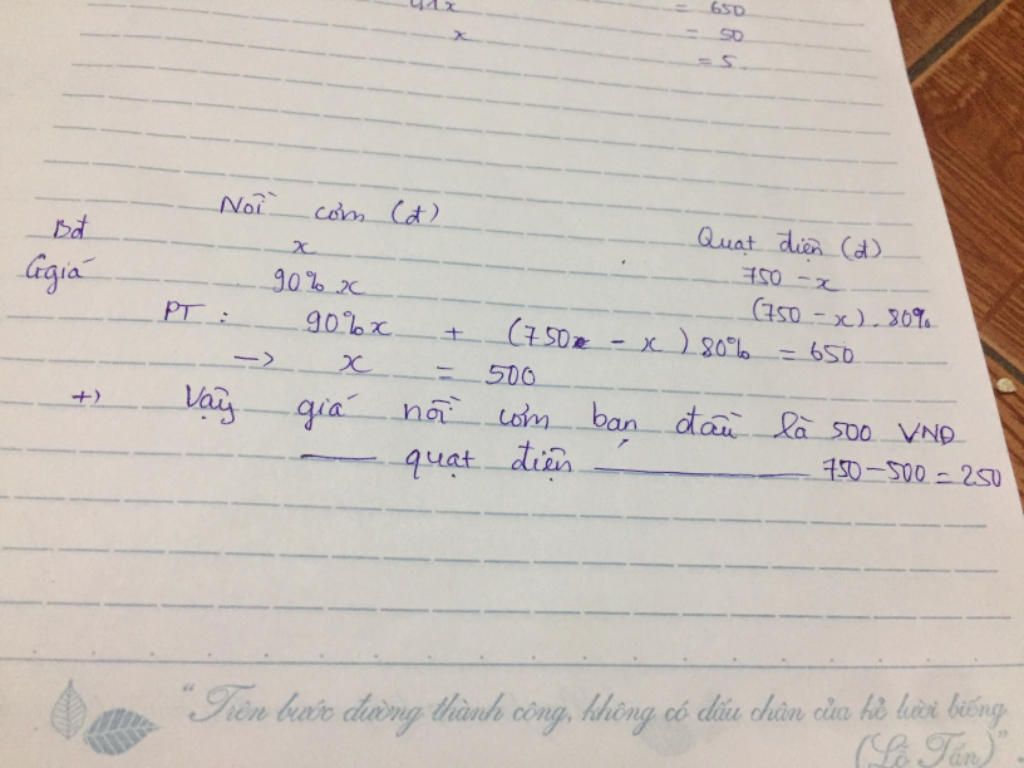 = 650
x = 50
= 5
Nồi cơm (đ) Quạt điện (đ)
Bđ x 750 - x
Ggiá 90% x (750 - x). 80%
PT : 90%x + (750 - x) 80% = 650
—> x = 500
+) Vậy giá nồi cơm ban đầu là 500 VNĐ
—— quạt điện ———— 750 - 500 = 250
“Trên bước đường thành công, không có dấu chân của kẻ lười biếng
(Lỗ Tấn)”.